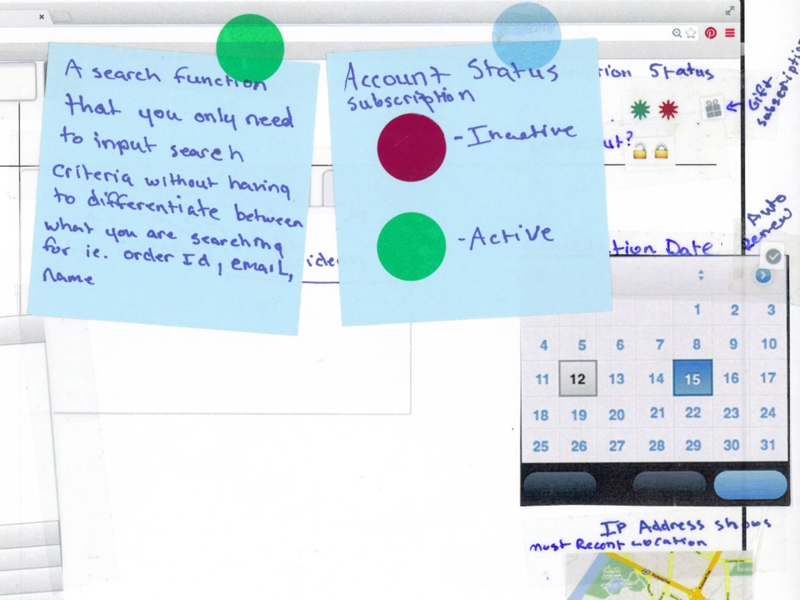 A search function
that you only need
to input search
criteria without having
to differentiate between
what you are searching
for ie. order Id, email,
name
Account Status
subscription
-Inactive
-Active
Status
Gift
subscription
Auto
Renew
Date
1 2 3
4 5 6 7 8 9 10
11 12 13 14 15 16 17
18 19 20 21 22 23 24
25 26 27 28 29 30 31
IP Address shows
most Recent Location